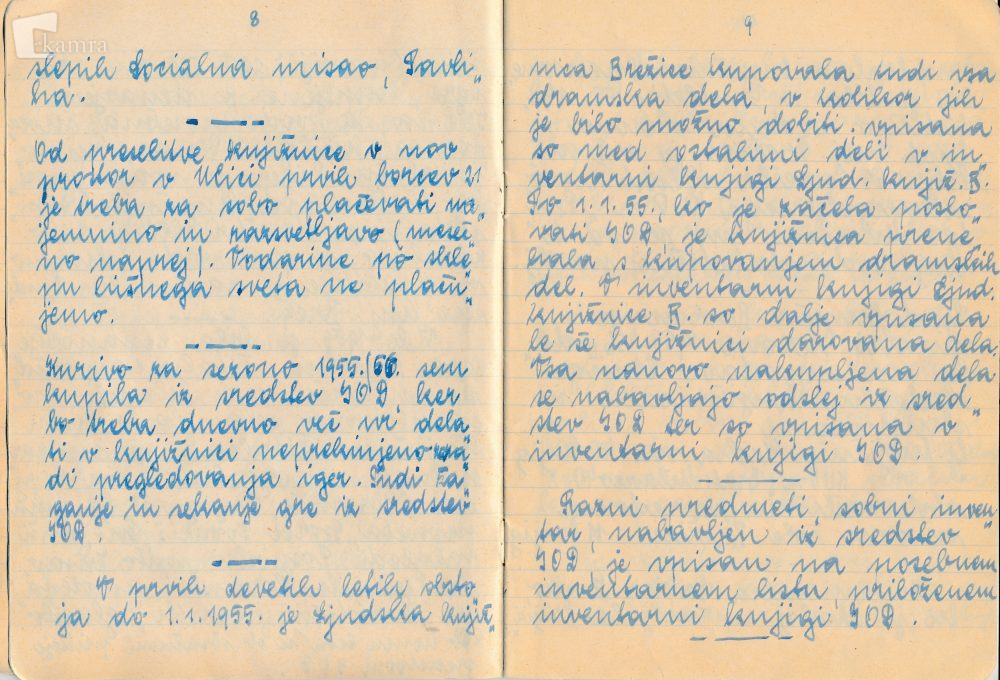 kamra
8
slepih Socialna misao, Pavli„
ha.
Od preselitve knjižnice v nov
prostor v Ulici prvih borcev 21
je treba za sobo plačevati na„
jemnino in razsvetljavo (meseč„
no naprej). Vodarine po skle„
pu hišnega sveta ne plaču„
jemo.
Kurivo za sezono 1955./56. sem
kupila iz sredstev IOD, ker
bo treba dnevno več ur dela„
ti v knjižnici neprekinjeno za„
di pregledovanja iger. Tudi ža„
ganje in sekanje gre iz sredstev
IOD.
V prvih devetih letih obsto„
ja do 1.1.1955. je Ljudska knjiž„
9
nica Brežice kupovala tudi vsa
dramska dela, v kolikor jih
je bilo možno dobiti. Vpisana
so med ostalimi deli v in„
ventarni knjigi Ljud. knjiž. II.
Po 1.1.55., ko je začela poslo„
vati IOD, je knjižnica prene„
hala s kupovanjem dramskih
del. V inventarni knjigi Ljud.
knjižnice II. so dalje vpisana
le še knjižnici darovana dela.
Vsa nanovo nakupljena dela
se nabavljajo odslej iz sred„
stev IOD ter so vpisana v
inventarni knjigi IOD.
Razni predmeti, sobni inven„
tar, nabavljen iz sredstev
IOD, je vpisan na posebnem
inventarnem listu, priloženem
inventarni knjigi IOD.